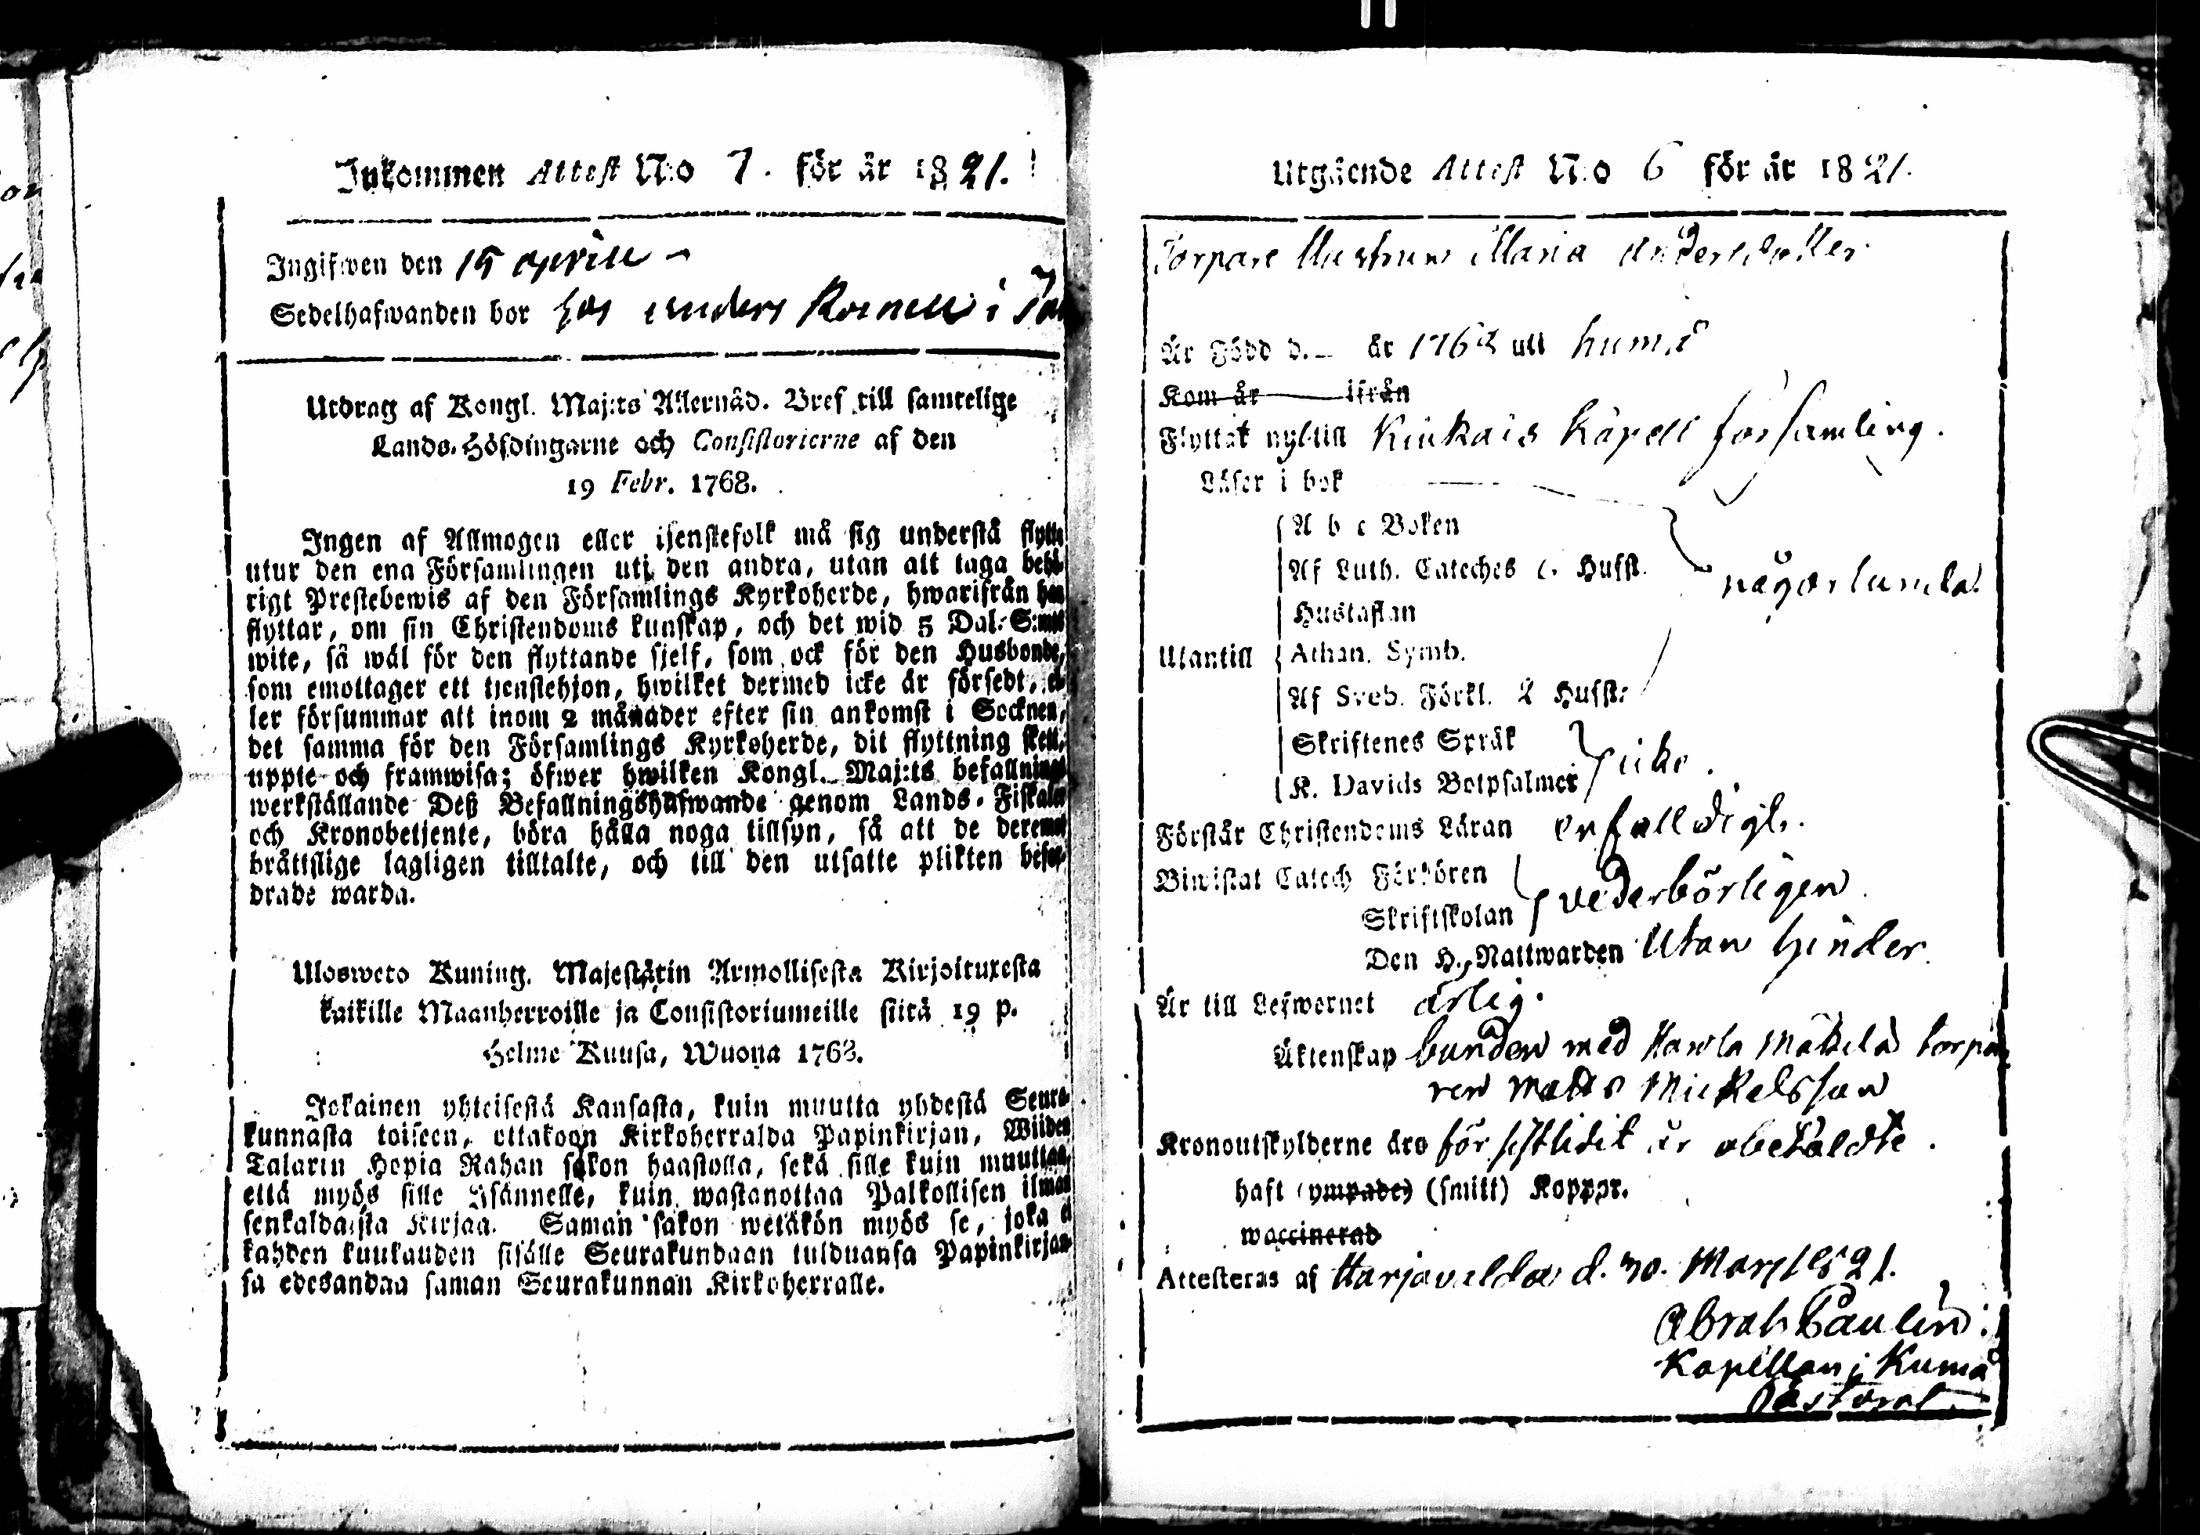 Inkommen Attest N:o 7. för år 1821.
Ingifwen den 15 april
Sedelhafwanden bor hos anders
Utdrag af Kongl. Maj:ts Allernåd. Bref till samtelige
Lands-Höfdingarne och Consistorierne af den
19 Febr. 1768.
Ingen af Allmogen eller tjenstefolk må sig understå flytta
utur den ena Församlingen uti den andra, utan att taga behö-
rigt Prestebewis af den Församlings Kyrkoherde, hwarifrån han
flyttar, om sin Christendoms kunskap, och det wid 5 Dal. S:mts
wite, så wäl för den flyttande sjelf, som ock för den Husbonde,
som emottager ett tjenstehjon, hwilket dermed icke är försedt, el-
ler försummar att inom 2 månader efter sin ankomst i Socknen,
det samma för den Församlings Kyrkoherde, dit flyttning skett,
uppte och framwisa; öfwer hwilken Kongl. Maj:ts befallning
werkställande Deß Befallningshafwande genom Lands-Fiskaler
och Kronobetjente, böra hålla noga tillsyn, så att de deremot
bråttslige lagligen tilltalte, och till den utsatte plikten befor-
drade warda.
Ulosweto Kuning. Majestätin Armollisesta Kirjoituxesta
kaikille Maanherroille ja Consistoriumeille siitä 19 p.
Helme Kuusa, Wuona 1768.
Jokainen yhteisestä Kansasta, kuin muutta yhdestä Seura-
kunnasta toiseen, ottakoon Kirkoherralda Papinkirjan, Wiiden
Talarin Hopia Rahan sakon haastolla, sekä sille kuin muuttaa,
että myös sille Isännelle, kuin wastanottaa Palkollisen ilman
senkaldaista Kirjaa. Saman sakon wetäkön myös se, joka ei
kahden kuukauden sisälle Seurakundaan tulduansa Papinkirjan-
sa edesandaa saman Seurakunnan Kirkoherralle.
Utgående Attest N:o 6 för år 1821.
Torpare Hustrun Maria Andersdotter
År Född d. — år 176 uti Kumå
Kom år ifrån
Flyttat nyl. till Kiukais Kapell församling.
Läser i bok
A b c Boken
Af Luth. Cateches c. Husst.
någorlunda
Hustaflan
Utantill Athan. Symb.
Af Sveb. Förkl. 2 Husst.
Skriftenes Språk
K. Davids Botpsalmer icke.
Förstår Christendoms Läran enfalldigt.
Biwistat Catech Förhören
Skriftskolan vederbörligen
Den H. Nattwarden Utan hinder.
Är till Lefwernet ärlig.
Äktenskap bunden med Mäkilä torpa-
ren Matts Mickelsson
Kronoutskylderne äro för sistledit år obetaldte.
haft (ympade) (smitt) Koppor.
waccinerad
Attesteras af Harjavalda d. 30. Mars 1821.
Abrah Paulin
Kapellan i Kumå
Pastorat.